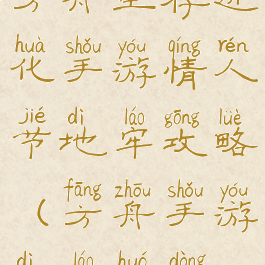 huà shǒu yóu qíng rén
化手游情人
jié dì láo gōng lüè
节地牢攻略
fāng zhōu shǒu yóu
（方舟手游
dì láo huó dòng